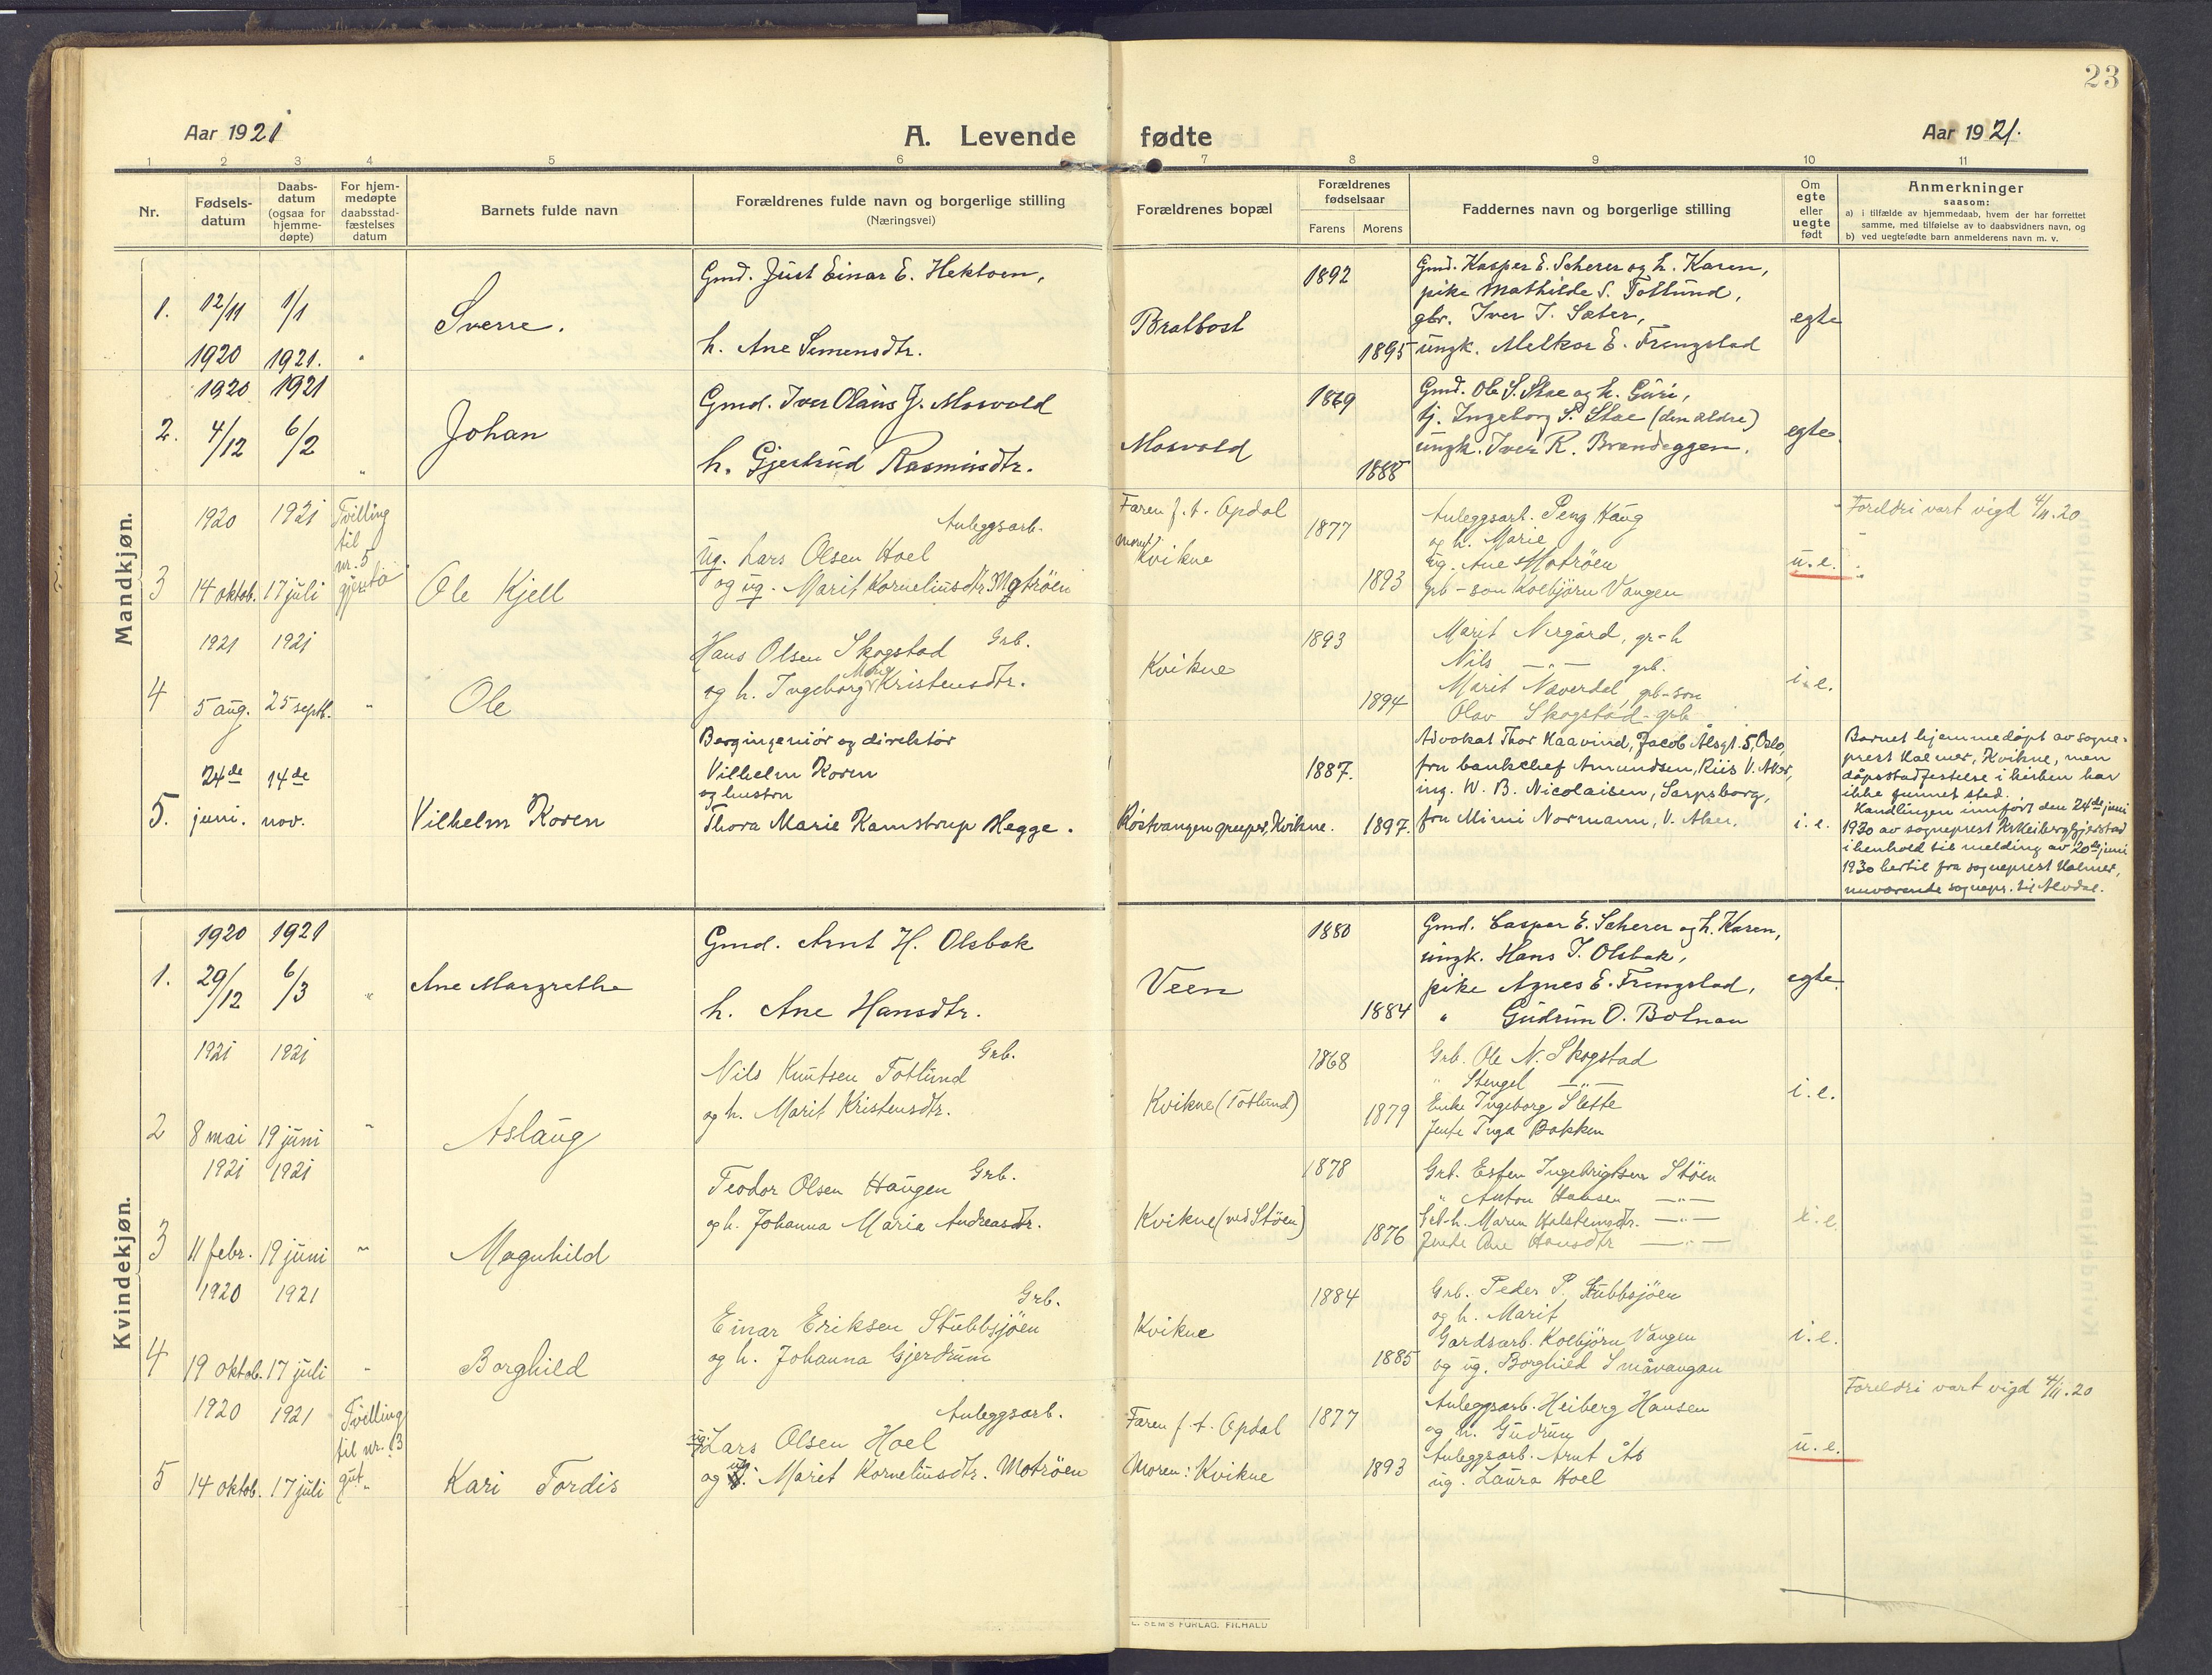 23
Aar 1921
A. Levende fødte
Aar 1921.
1 2 3 4 5 6 7 8 9 10 11
Nr.
Fødsels-
datum
Daabs-
datum
(ogsaa for
hjemme-
døpte)
For hjem-
medøpte
daabsstad-
fæstelses
datum
Barnets fulde navn
Forældrenes fulde navn og borgerlige stilling
(Næringsvei)
Forældrenes bopæl
Forældrenes
fødselsaar
Farens Morens
Faddernes navn og borgerlige stilling
Om
egte
eller
uegte
født
Anmerkninger
saasom:
a) i tilfælde av hjemmedaab, hvem der har forrettet
samme, med tilføielse av to daabsvidners navn, og
b) ved uegtefødte barn anmelderens navn m. v.
Mandkjøn.
1.
12/11
1920
1/1
1921.
"
Sverre.
Gmd. Just Einar E. Hektoen,
h. Ane Simensdtr.
Bratbost
1892
1895
Gmd. Kasper E. Scherer og h. Karen,
pike Mathilde S. Totlund,
gbr. Iver I. Sæter,
ungk. Melkor E. Frengstad
egte
2.
1920
4/12
1921
6/2
"
Johan
Gmd. Iver Olaus J. Mosvold
h. Gjertrud Rasmusdtr.
Mosvold
1869
1888
Gmd. Ole S. Stae og h. Guri,
tj. Ingeborg S. Stae (den ældre)
ungk. Iver R. Brandeggen.
egte
3
1920
14 oktob.
1921
17 juli
Tvilling
til
nr. 5
gjenta
Ole Kjell
Anleggsarb.
ug. Lars Olsen Hoel
og ug. Marit Korneliusdtr. Motröen
Faren f. t. Opdal
Mori
Kvikne
1877
1893
Anleggsarb. Peng Haug
og h. Marie
ug. Ane Motröen
grb-son Kolbjörn Vangen
u.e.
Foreldri vart vigd 4/11.20
4
1921
5 aug.
1921
25 septb.
"
Ole
Hans Olsen Skogstad Grb.
og h. Ingeborg Marie Kristensdtr.
Kvikne
1893
1894
Marit Nergård, gr-h
Nils —"— grb.
Marit Næverdal, grb-son
Olav Skogstad - grb
i.e.
5.
24de
juni.
14de
nov.
Vilhelm Koren
Bergingeniör og direktör
Vilhelm Koren
og hustru
Thora Marie Kamstrup Hegge.
Röstvangen gruber, Kvikne.
1887.
1897.
Advokat Thor Haavind, Jacob Alsgt. 5, Oslo,
fru bankchef Amundsen, Riis V. Aker,
ing. W. B. Nicolaisen, Sarpsborg,
fru Mimi Normann, V. Aker.
i.e.
Barnet hjemmedöpt av sogne-
prest Halmer, Kvikne, men
dåpsstadfestelse i kirken har
ikke funnet sted.
Handlingen innfört den 24de juni
1930 av sogneprest
i henhold til melding av 20de juni
1930 hertil fra sogneprest Halmer,
nuværende sognepr. til Alvdal.
Kvindekjøn.
1.
1920
29/12
1921
6/3
"
Ane Margrethe
Gmd. Arnt H. Olsbak
h. Ane Hansdtr.
Veen
1880
1884
Gmd. Casper E. Scherer og h. Karen,
ungk. Hans J. Olsbak,
pike Agnes E. Frengstad,
" Gudrun O. Botnan
egte
2
1921
8 mai
1921
19 juni
"
Aslaug
Grb.
Nils Knutsen Totlund
og h. Marit Kristensdtr.
Kvikne (Totlund)
1868
1879
Grb. Ole N. Skogstad
" Stengel —"—
Enke Ingeborg Slette
Jente Inga Bakken
i.e.
3
1921
11 febr.
1921
19 juni
"
Magnhild
Teodor Olsen Haugen Grb.
og h. Johanna Maria Andreasdtr.
Kvikne (ved Stöen)
1878
1876
Grb. Esten Ingebrigtsen Stöen
" Anton Hansen —"—
Grb-h. Maren Halstensdtr. —"—
Jente Ane Hansdtr —"—
i.e.
4
1920
19 oktob.
1921
17 juli
"
Borghild
Grb.
Einar Eriksen Stubbsjöen
og h. Johanna Gjerdrum
Kvikne
1884
1885
Grb. Peder P. Stubbsjöen
og h. Marit
Gardsarb. Kolbjörn Vangen
og ug. Borghild Småvangan
i.e.
5
1920
14 oktob.
1921
17 juli
Tvilling
til nr. 3
gut
Kari Tordis
Anleggsarb.
ug. Lars Olsen Hoel
og ug. Marit Korneliusdtr. Moträen
Faren f. t. Opdal
Moren: Kvikne
1877
1893
Anleggsarb. Heiberg Hansen
og h. Gudrun
Anleggsarb. Arnt Ås
ug. Laura Hoel
u.e.
Foreldri vart vigd 4/11.20